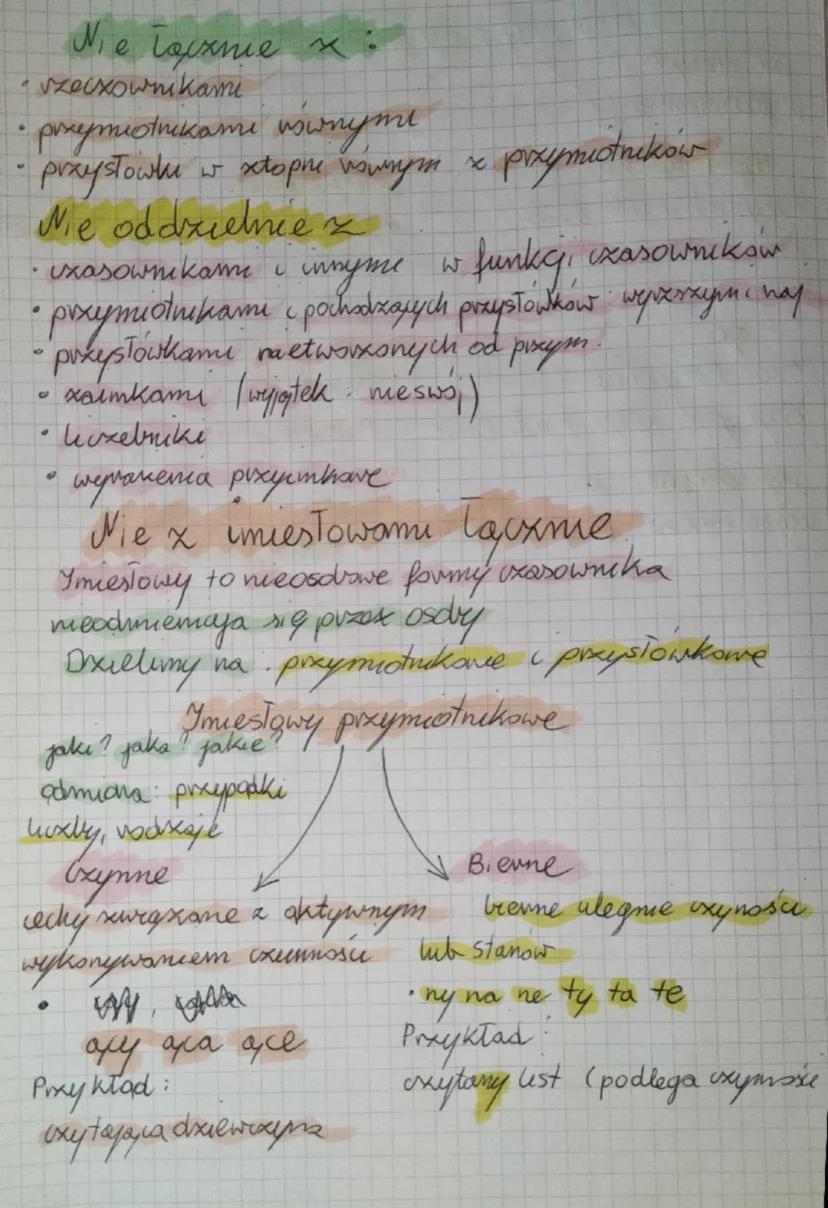 Nie łącznie z:
• rzeczownikami
• przymiotnikami równymi
• przysłówki w stopni równym z przymiotników
Nie oddzielnie z
• czasownikami i innymi w funkcji czasowników
• przymiotnikami i pochodzących przysłówków wyższym i naj
• przysłówkami nietworzonych od przym.
• zaimkami (wyjątek: nieswój)
• liczebniki
• wyrażenia przyimkowe
Nie z imiesłowami łącznie
Imiesłowy to nieosobowe formy czasownika
nieodmieniaja się przez osoby
Dzielimy na: przymiotnikowe i przysłówkowe
Imiesłowy przymiotnikowe
jaki? jaka? jakie?
odmiana: przypadki
liczby, rodzaje
Czynne
cechy związane z aktywnym
wykonywaniem czynności
•
ący ąca ące
Przykład:
czytająca dziewczyna
Bierne
bierne ulegnie czyności
lub stanów
• ny na ne ty ta te
Przykład:
czytany list (podlega czynności